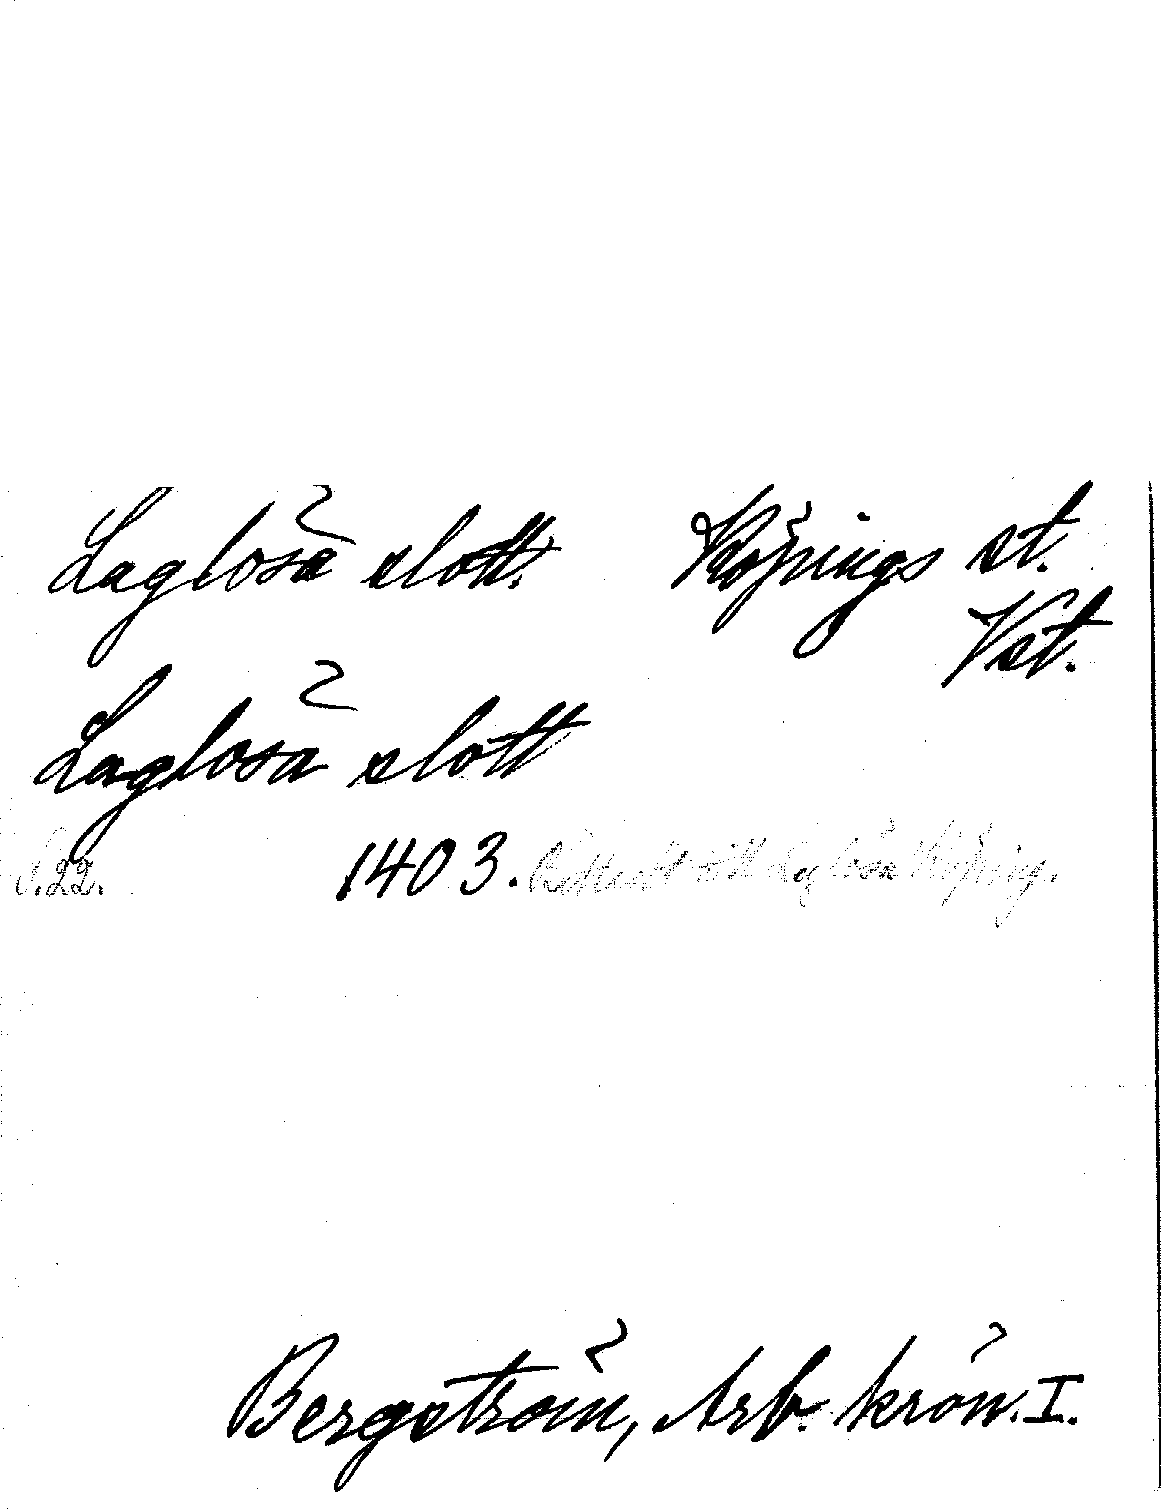 Laglösa slott. Köpings st.
Vst.
Laglösa slott
S. 22. 1403. till Laglösa Köping.
Bergström, Arb. krön. I.